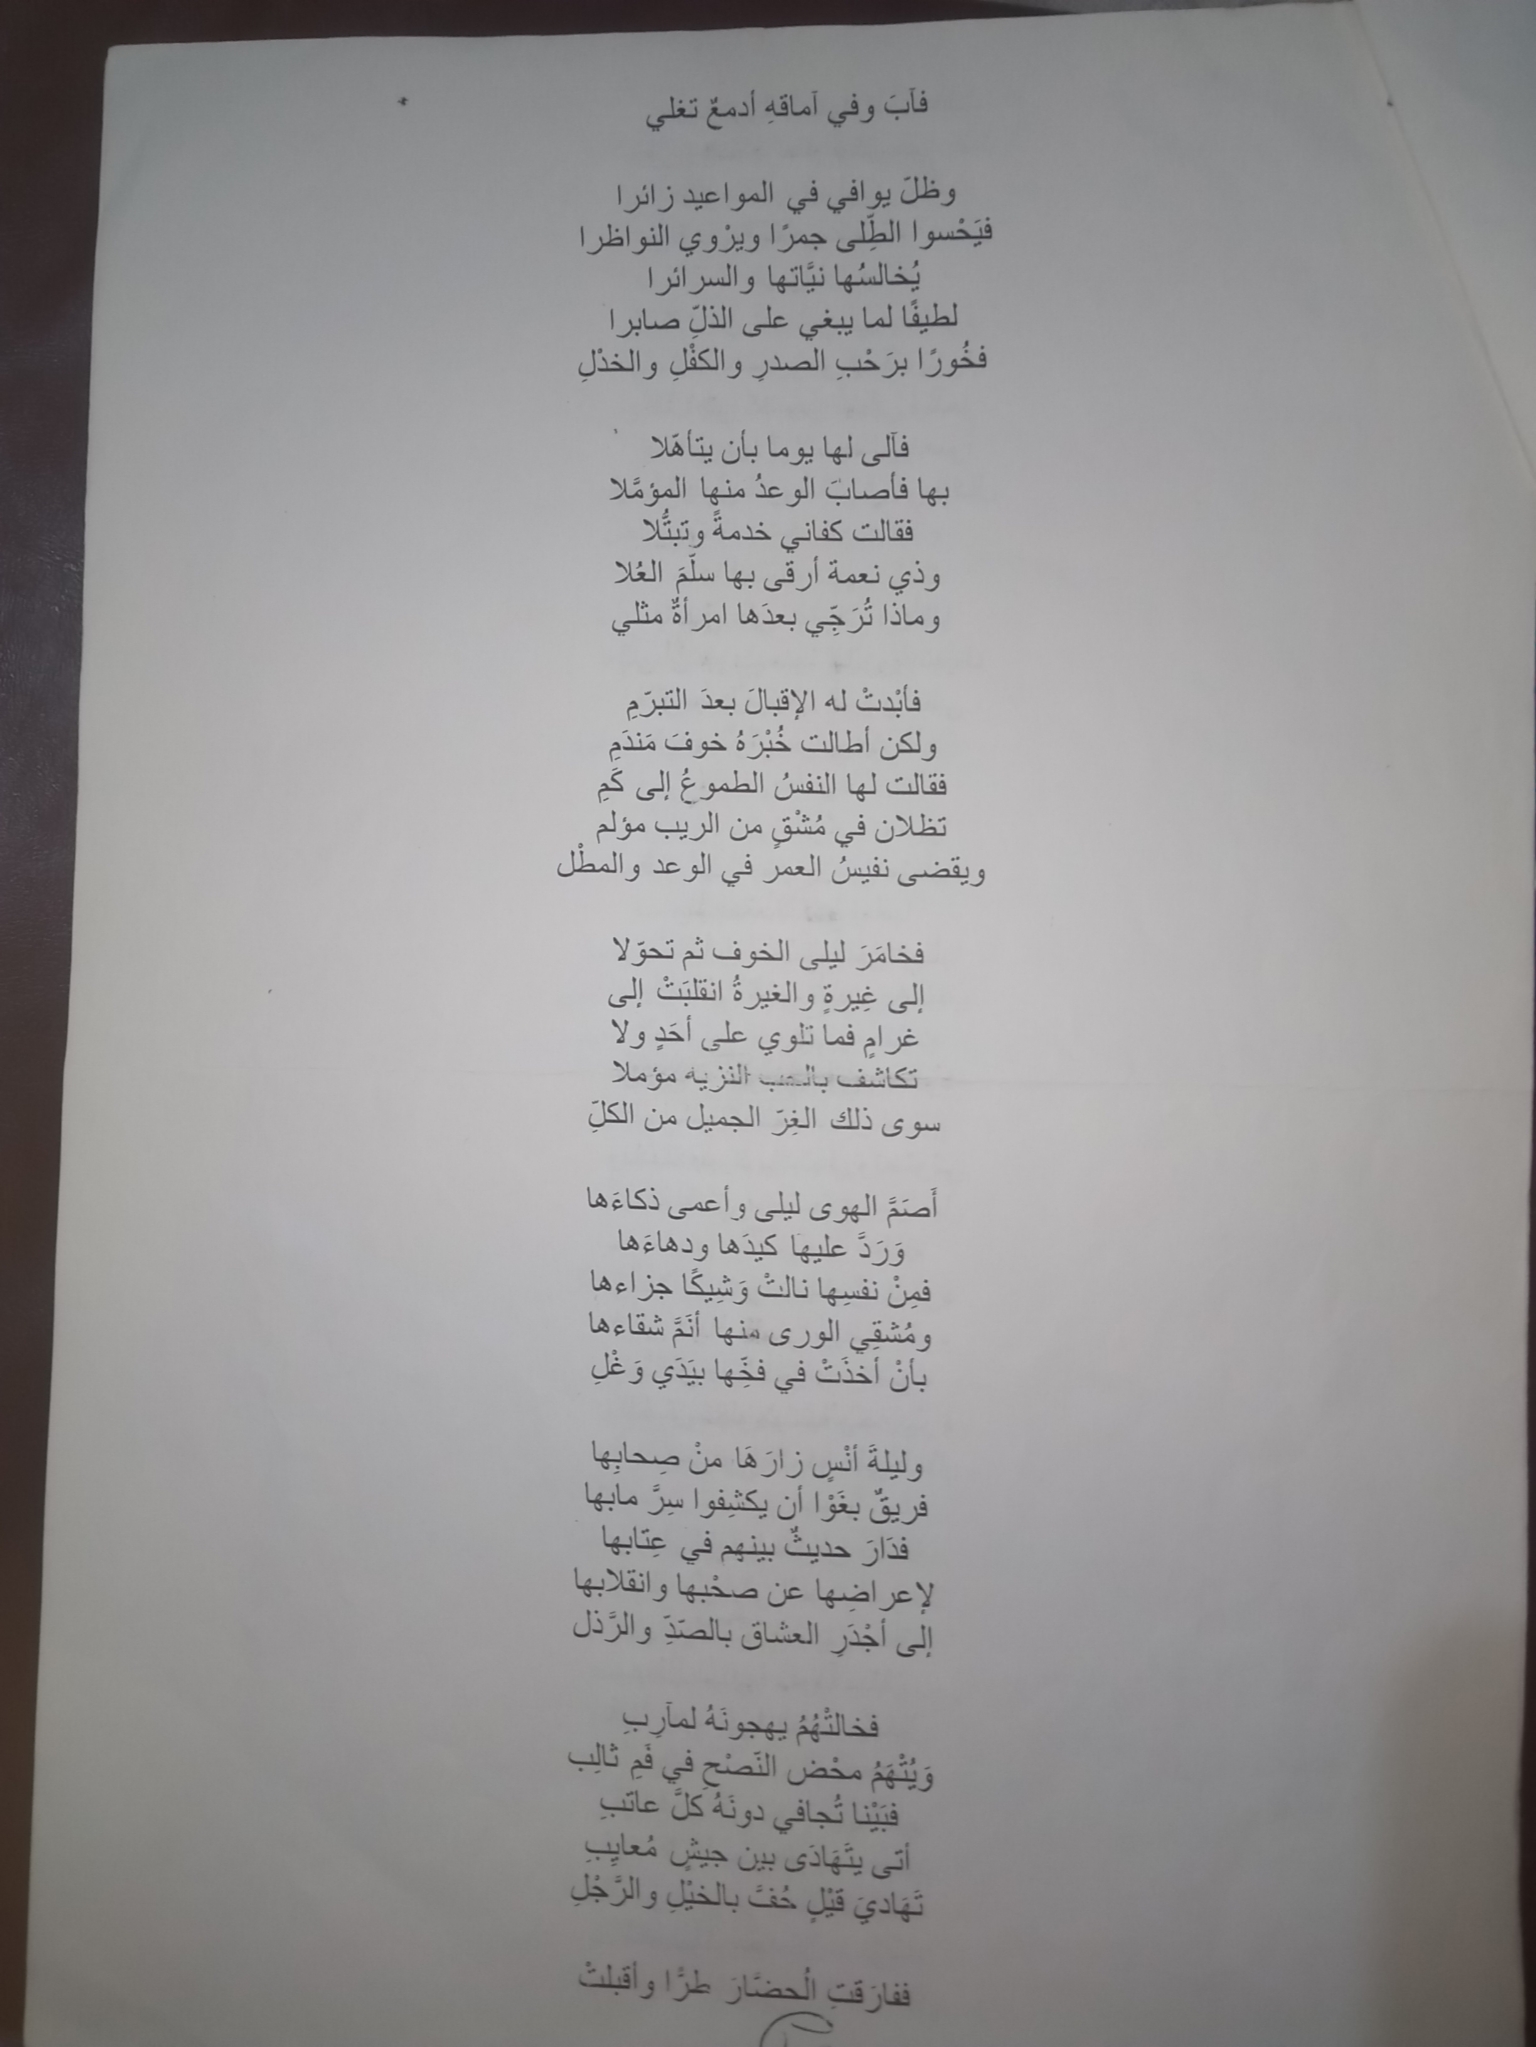 فآبَ وفي آماقهِ أدمعٌ تغلي
وظلَ يوافي في المواعيد زائرا
فيَحْسوا الطِّلى جمرًا ويرْوي النواظرا
يُخالسُها نيَّاتها والسرائرا
لطيفًا لما يبغي على الذلِّ صابرا
فخُورًا برَحْبِ الصدرِ والكفْلِ والخدْلِ
فآلى لها يوما بأن يتأهّلا
بها فأصابَ الوعدُ منها المؤمَّلا
فقالت كفاني خدمةً وتبتُّلا
وذي نعمة أرقى بها سلّمَ العُلا
وماذا تُرَجِّي بعدَها امرأةٌ مثلي
فأبْدتْ له الإقبالَ بعدَ التبرّمِ
ولكن أطالت خُبْرَهُ خوفَ مَندَمِ
فقالت لها النفسُ الطموعُ إلى كَمِ
تظلان في مُشْقٍ من الريب مؤلم
ويقضى نفيسُ العمر في الوعد والمطْل
فخامَرَ ليلى الخوف ثم تحوّلا
إلى غِيرةٍ والغيرةُ انقلبَتْ إلى
غرامٍ فما تلوي على أحَدٍ ولا
تكاشف بالحب النزيه مؤملا
سوى ذلك الغِرّ الجميل من الكلِّ
أَصَمَّ الهوى ليلى وأعمى ذكاءَها
وَرَدَّ عليها كيدَها ودهاءَها
فمِنْ نفسِها نالتْ وَشِيكًا جزاءها
ومُشقِي الورى منها أتَمَّ شقاءها
بأنْ أخذَتْ في فخِّها بيَدَي وَغْلِ
وليلةَ أنْسٍ زارَهَا منْ صِحابِها
فريقٌ بغَوْا أن يكشِفوا سِرَّ مابها
فدَارَ حديثٌ بينهم في عِتابها
لإعراضِها عن صحْبها وانقلابها
إلى أجْدَرِ العشاق بالصَدِّ والرَّذل
فخالتْهُمُ يهجونَهُ لمآرِبِ
وَيُتْهَمُ محْض النَصْحِ في فَمِ ثالِب
فبَيْنا تُجافي دونَهُ كلَّ عاتبِ
أتى يتَهَادَى بين جيشٍ مُعايِبِ
تَهَاديَ قَيْلٍ حُفَّ بالخيْلِ والرَّجْلِ
ففارَقتِ الُحضَّارَ طرَّا وأقبلتْ